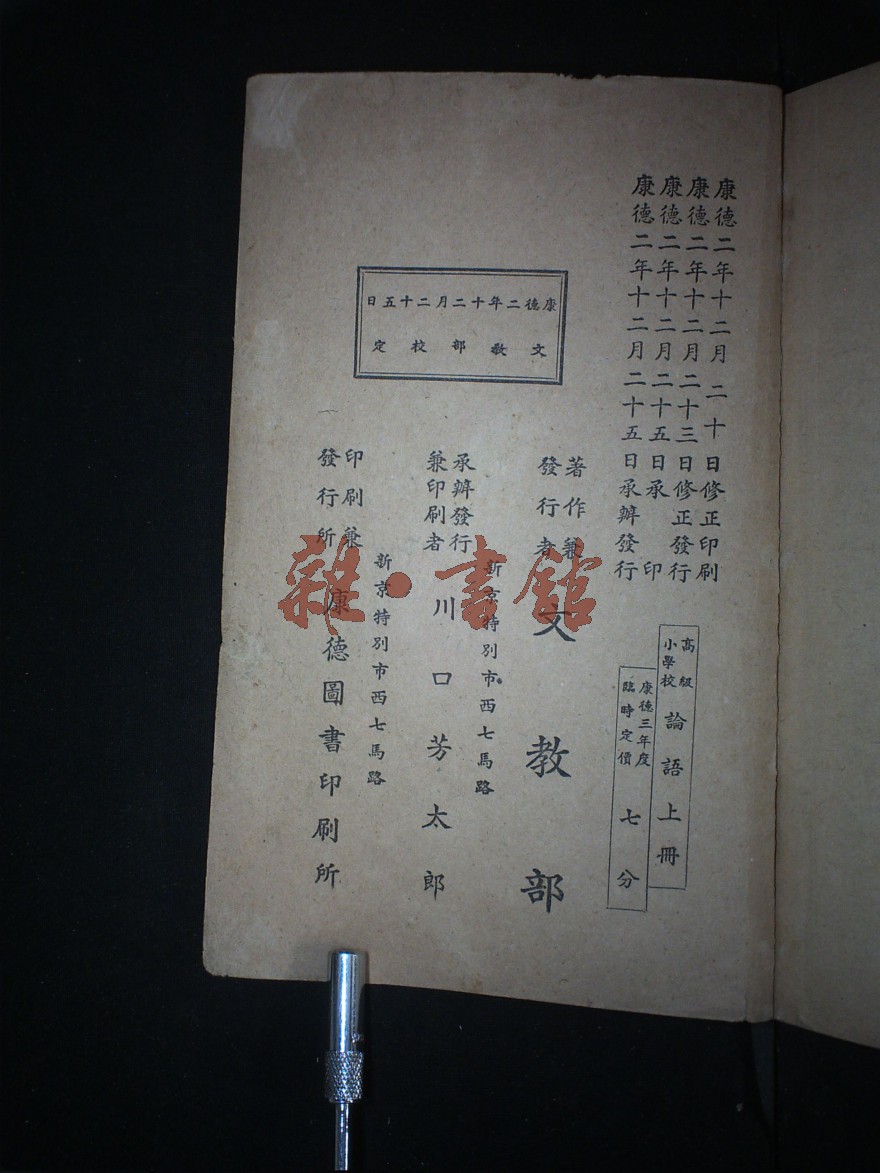 康德二年十二月二十日修正印刷
康德二年十二月二十三日修正發行
康德二年十二月二十五日承印
康德二年十二月二十五日承辦發行
高級
小學校
論語上冊
康德三年度
臨時定價
七分
康德二年十二月二十五日
文教部校定
著作兼
發行者
文教部
新京特別市西七馬路
承辦發行
兼印刷者
川口芳太郎
新京特別市西七馬路
印刷兼
發行所
康德圖書印刷所
雜·書館